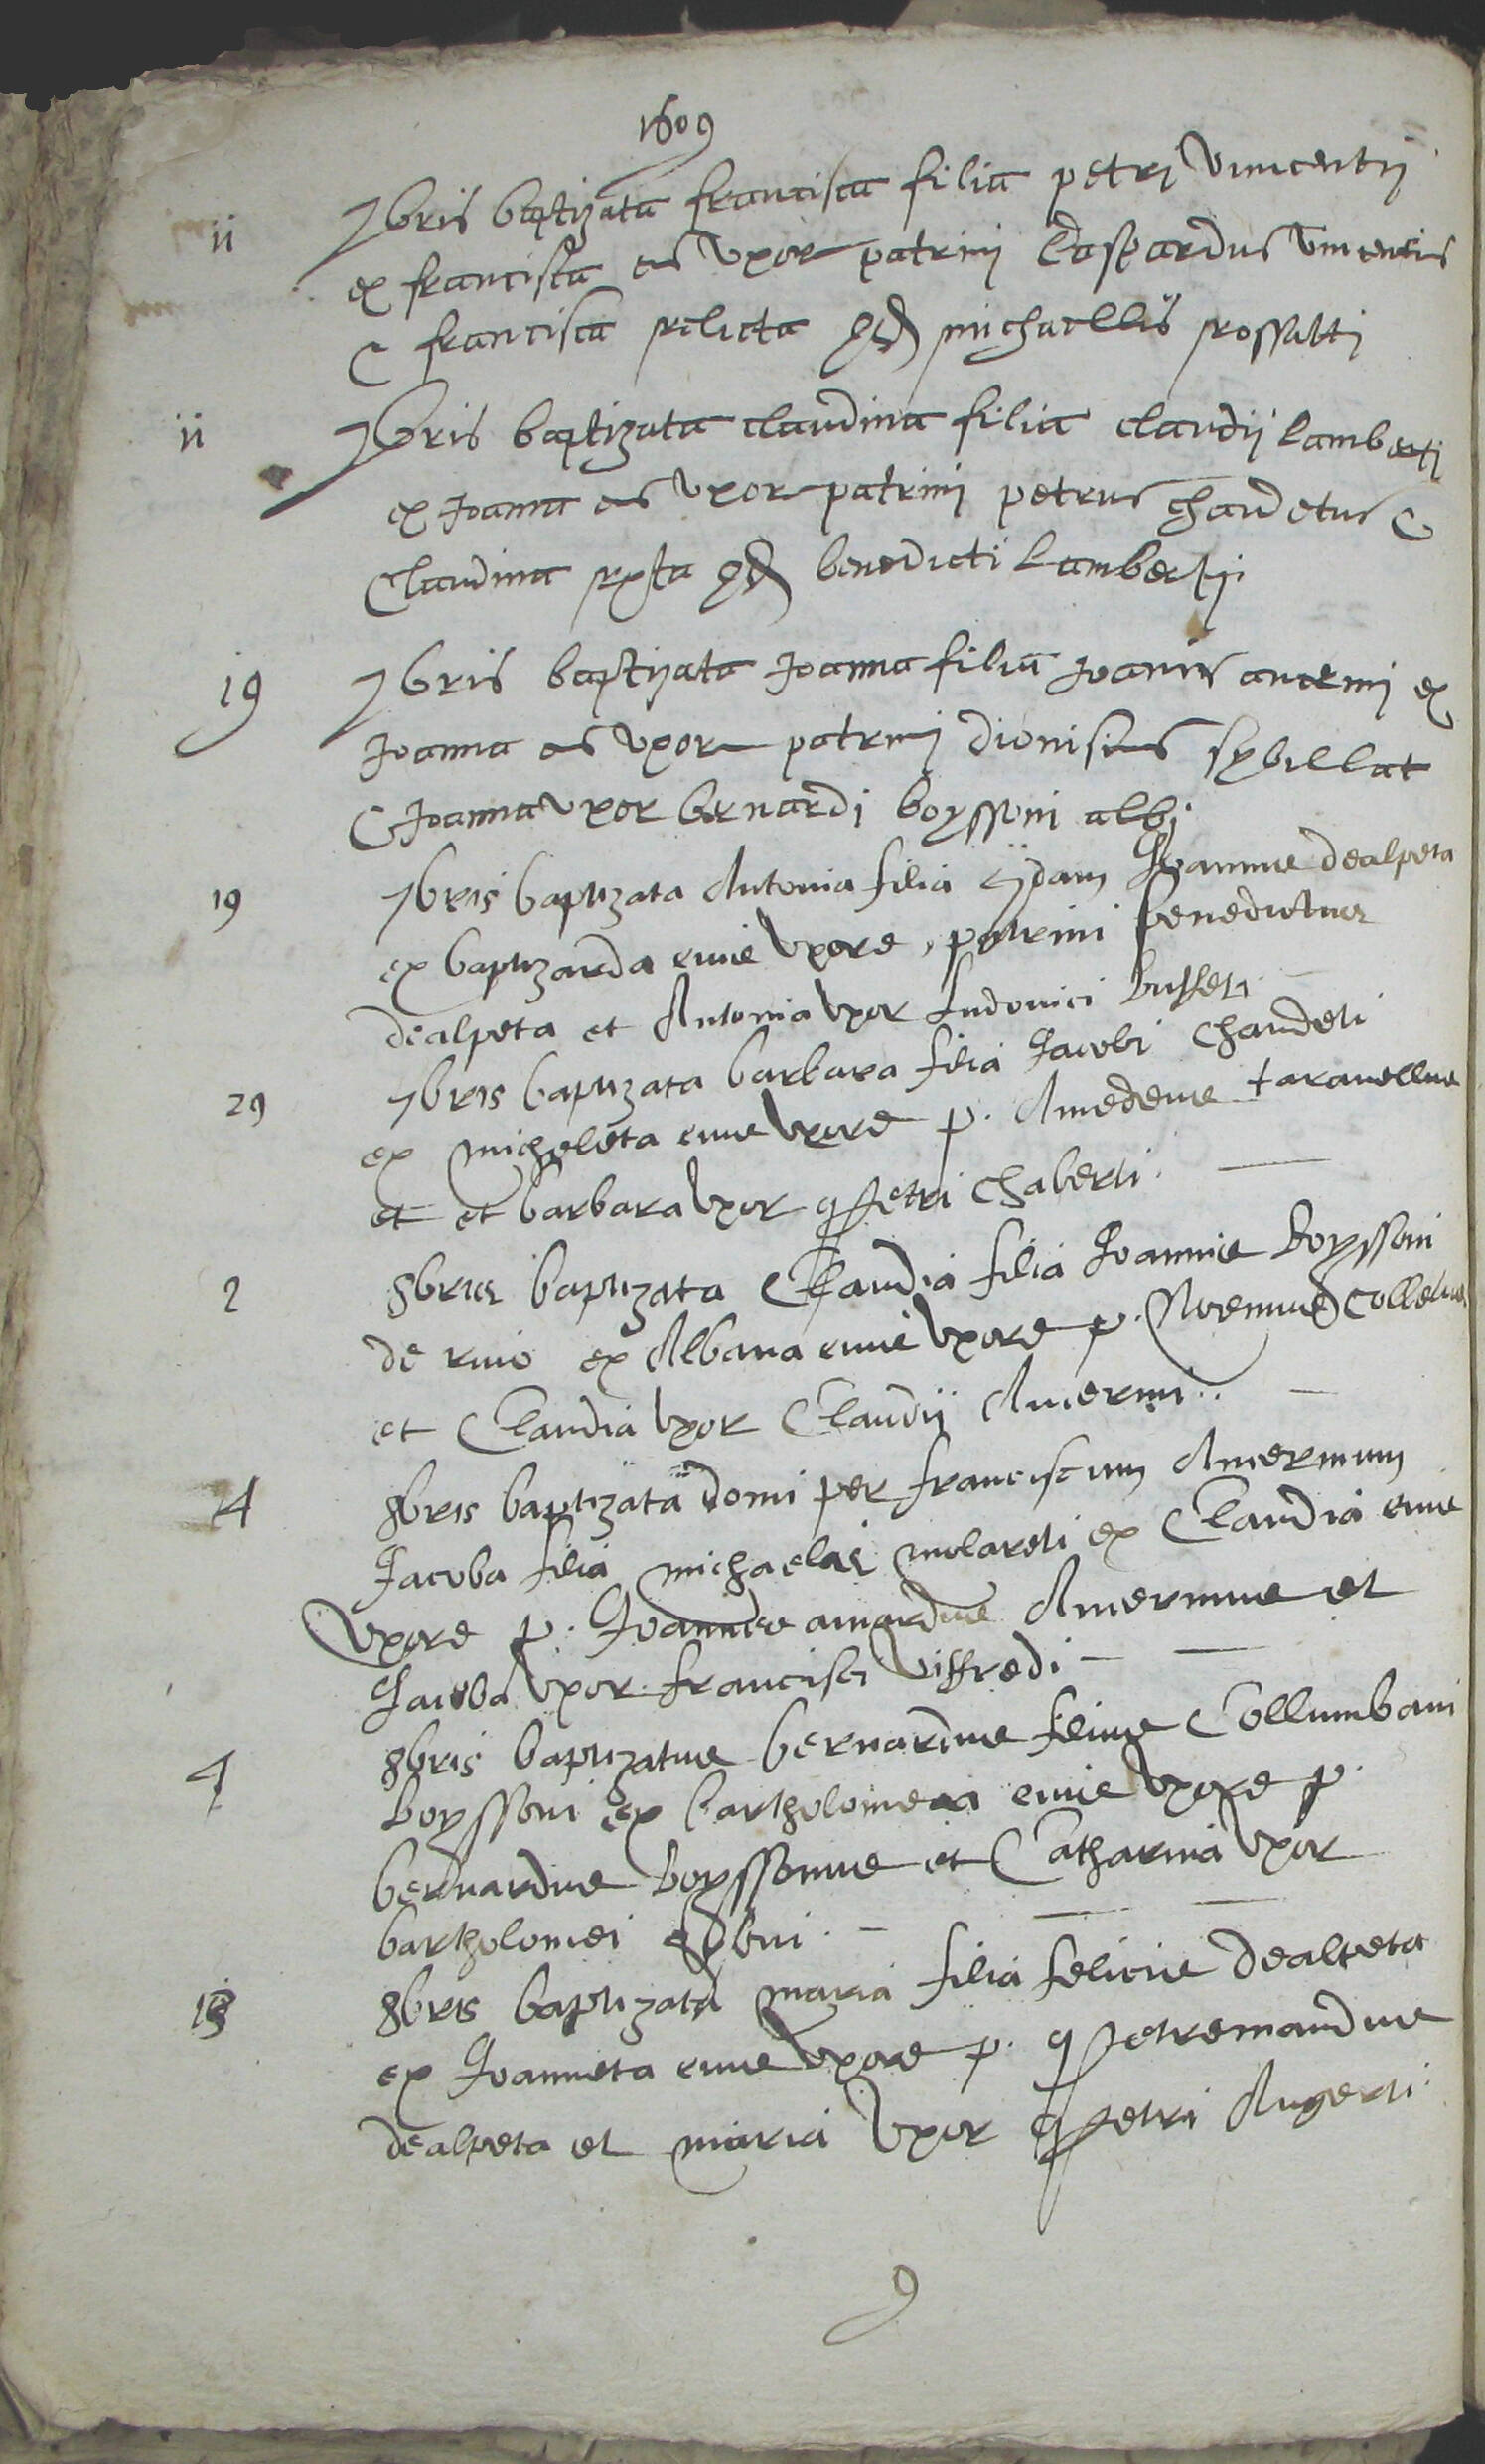 1609
ii 7bris baptizata francisca filia petri vincentii
ex francisca eius uxor patrini Gaspardus vincentius
& francisca relicta qd michaellis rossatti
ii 7bris baptizata claudina filia claudii lamberti
ex Joanna eius uxor patrini petrus chaudetus &
Claudina rxta qd benedicti Lamberti
19 7bris baptizata Joanna filia Joanis avermi ex
Joanna eius uxore patrini dionisius sybillat
& Joanna uxor bernardi boyssoni albi
19 7bris baptizata Antonia filia Joannis dealpeta
ex baptizarda eius uxore, patrini benedictus
dealpeta et Antonia uxor Ludovici busseti
29 7bris baptizata barbara filia Jacobi Chaudeti
ex micheleta eius uxore p. Amedeus taravellus
et et barbara uxor q petri Chaberti.
2 8bris baptizata Claudia filia Joannis Boyssoni
de rivo ex Albana eius uxore p. Colletus
et Claudia uxor Claudii Avermi.
4 8bris baptizata domi per franciscum Avermum
Jacoba filia michaelis molareti ex Claudia eius
uxore p. Joannes aimardus Avermus et
Jacoba uxor francisci Viffredi
4 8bris baptizatus bernardus filius Collumbani
Boyssoni ex bartholomea eius uxore p.
bernardus Boyssonus et Catharina uxor
bartholomei
13 8bris baptizata maria filia felicis dealpeta
ex Joanneta eius uxore p. q petremandus
dealpeta et maria uxor q petri Augerti
9